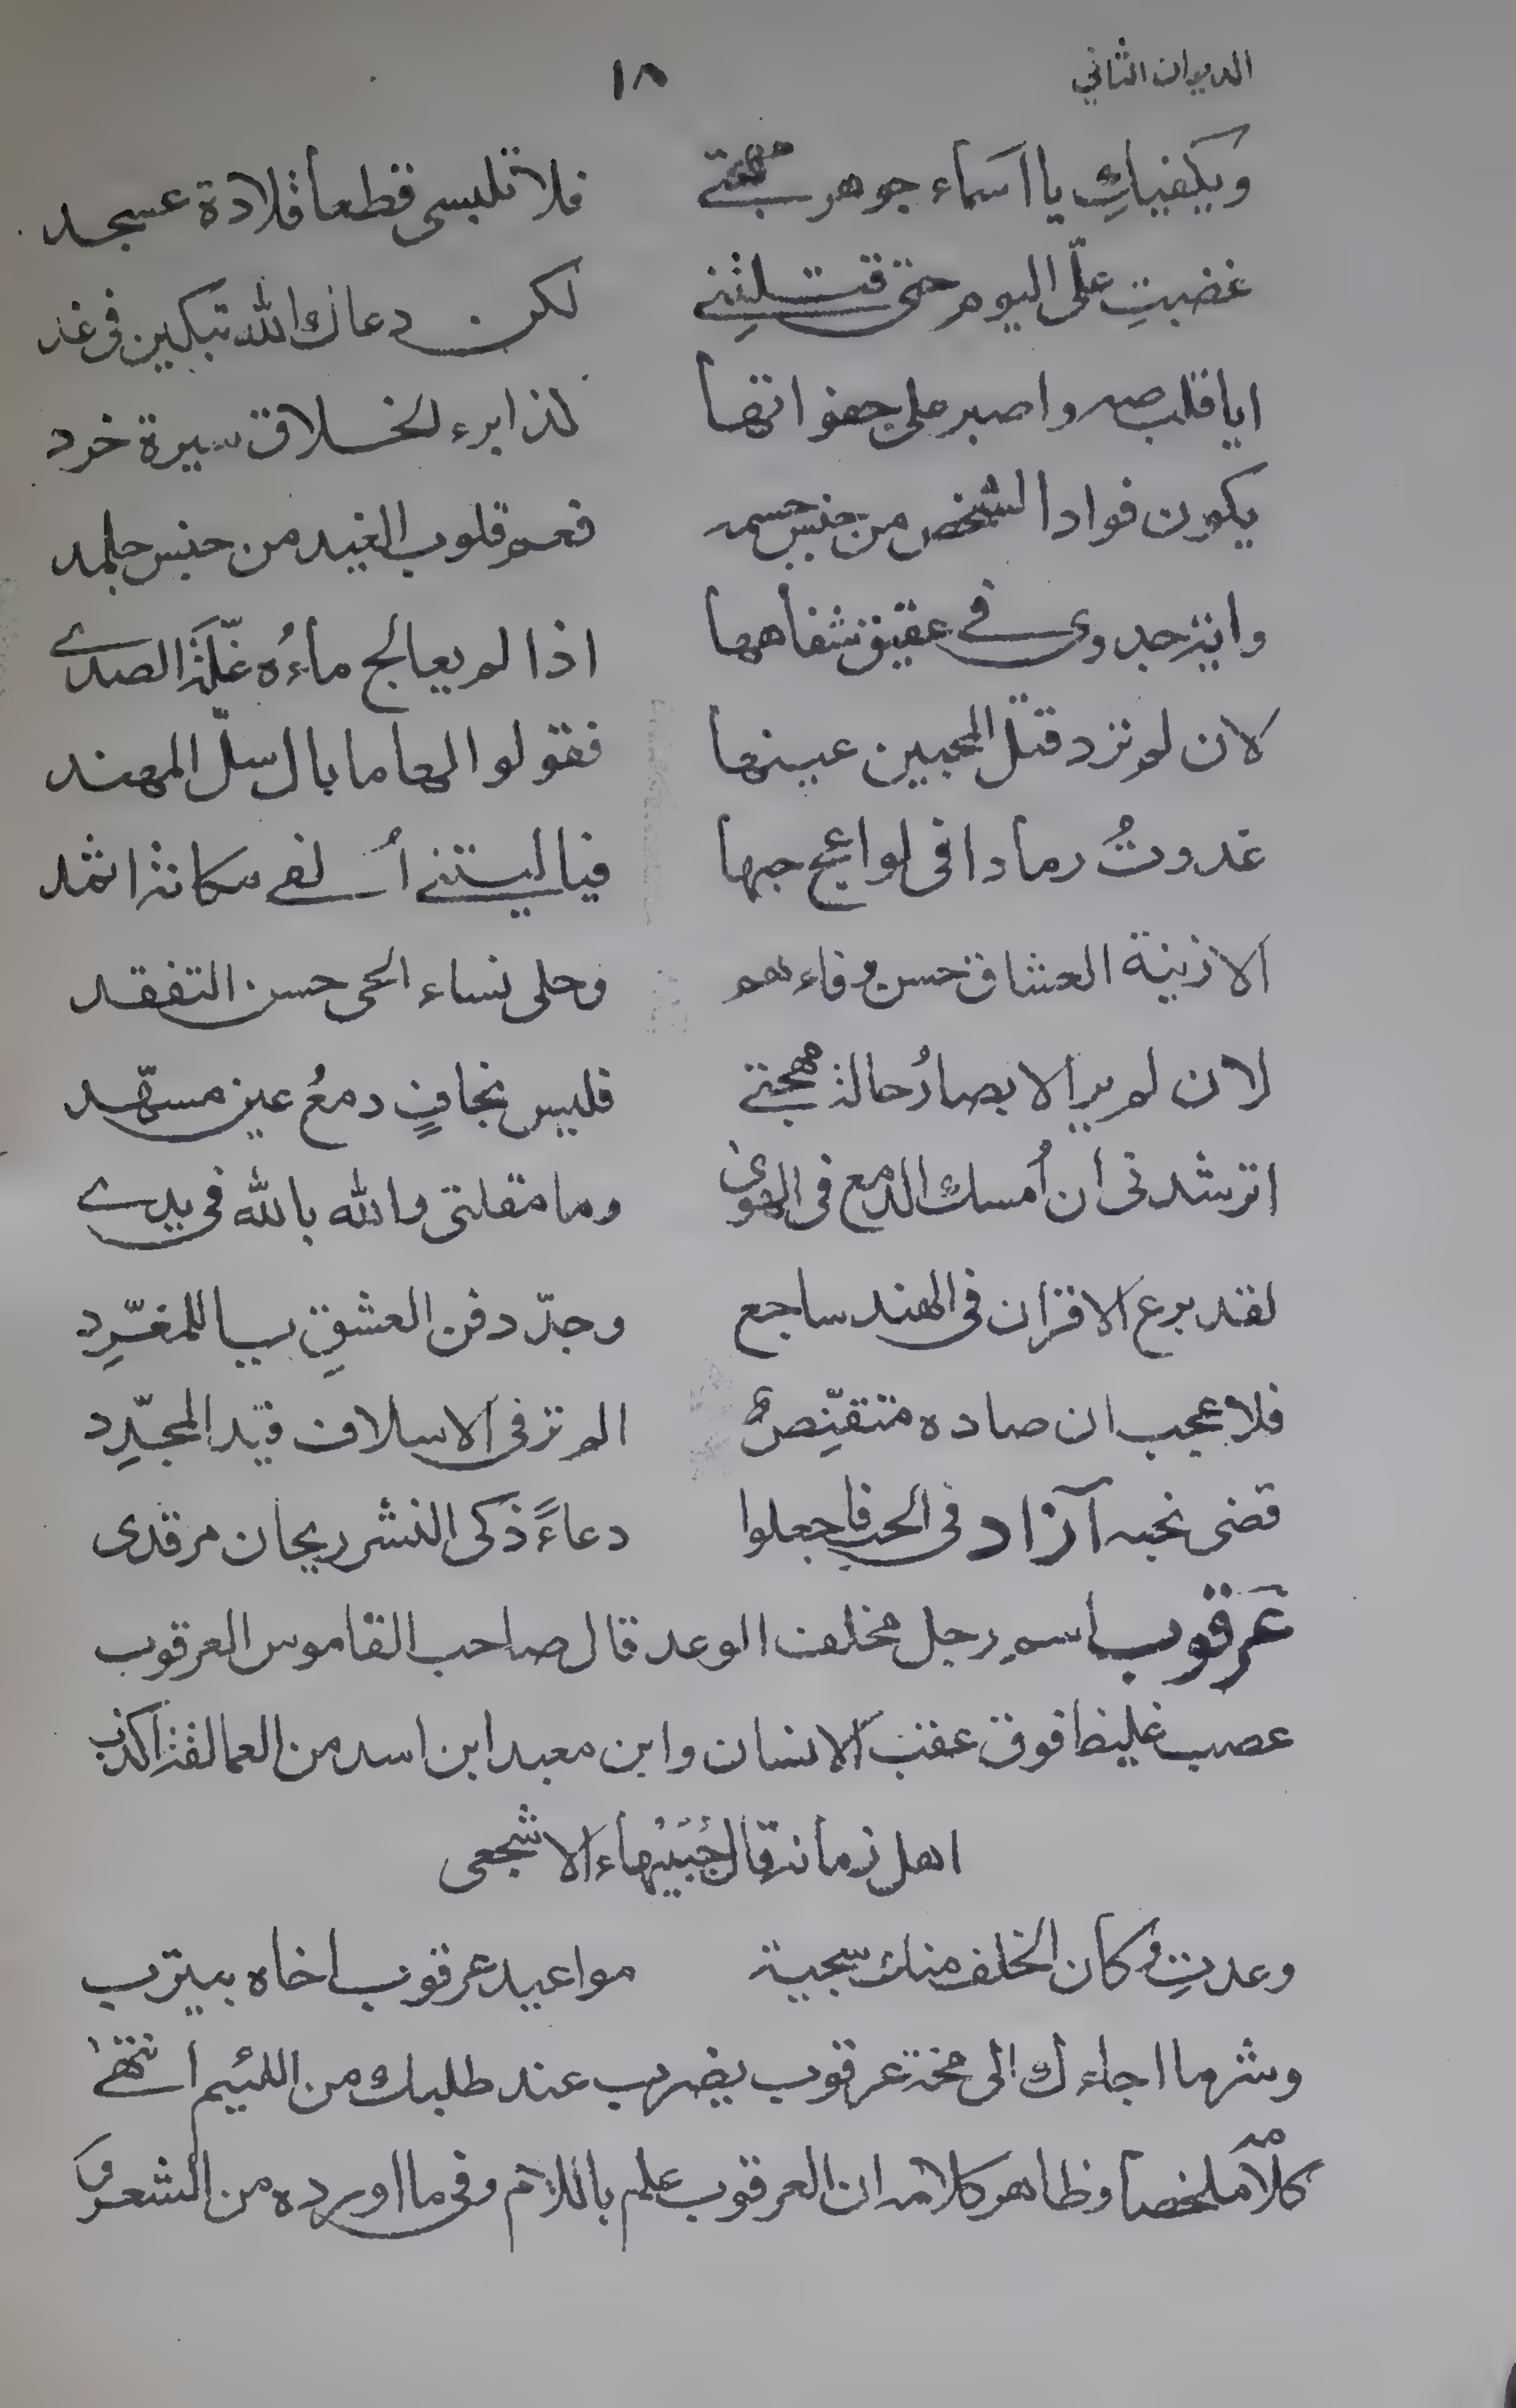 الديوان الثاني ١٨
ويكفيكِ يا اسماء جوهر مهجتي فلا تلبسى قطعا قلادة عسجد
غضبتِ علّى اليوم حتى قتلتِنے لكن دعاك الله تبكين فى غد
ايا قلب صه واصبر على جفواتها كذا برء الخلاق سيرة خرد
يكون فواد الشخص من جنس جسمه فعم قلوب الغيد من جنس جلمد
واية جدوى في عقيق شفاهها اذا لم يعالج ماءُه غلّةَ الصدے
لان لم ترد قتل المحبين عينها فقولوا لها ما بال سلّ المهند
غدوتُ رمادا فى لواعج حبها فيا ليتنے أُلفے مكانة اثمد
الا زينة العشاق حسن وفاءهم وحلى نساء الحى حسن التفقد
لان لم ير الابصارُ حالة مهجتے فليس بخافٍ دمعُ عين مسهّد
اترشدنى ان اُمسك الدمع فى الهوىٰ وما مقلتى والله بالله فى يدے
لقد برع الاقران فى الهند ساجع وجدّد فن العشقِ يا للمغرِّد
فلا عجب ان صاده متقنِّص الم تر فى الاسلاف قيد المجدِّد
قضى نحبه آزاد فى الحب فاجعلوا دعاءً ذكى النشر ريحان مرقدى
عَرقوب اسم رجل مخلف الوعد قال صاحب القاموس العرقوب
عصب غليظ فوق عقب الانسان وابن معبد ابن اسد من العمالقة اكذب
اهل زمانه قال جُبَيْهاء الاشجعى
وعدتِ وكان الخلف منك سجية مواعيد عرقوب اخاه بيترب
وشر ما اجاءك الى مخة عرقوب يضرب عند طلبك من اللئيم انتهےٰ
كلامه ملخصا وظاهر كلامه ان العرقوب علم باللام وفى ما اورده من الشعر و